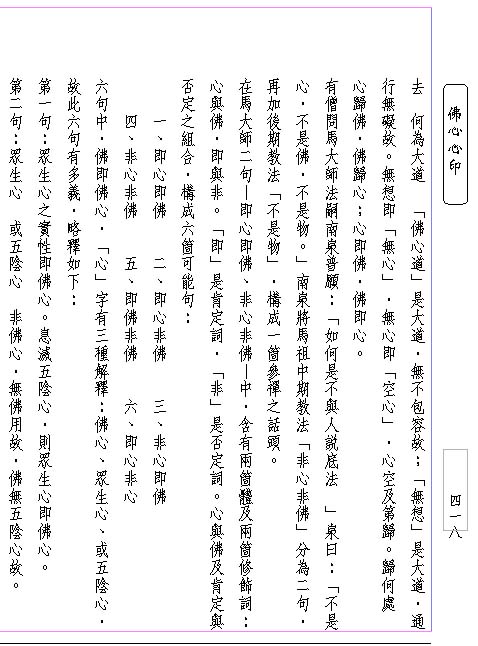 佛心心印
四一八
去　何為大道　「佛心道」是大道，無不包容故；「無想」是大道，通
行無礙故。無想即「無心」，無心即「空心」，心空及第歸。歸何處
心歸佛，佛歸心；心即佛，佛即心。
有僧問馬大師法嗣南泉普願：「如何是不與人說底法　」泉曰：「不是
心，不是佛，不是物。」南泉將馬祖中期教法「非心非佛」分為二句，
再加後期教法「不是物」，構成一箇參禪之話頭。
在馬大師二句—即心即佛、非心非佛—中，含有兩箇體及兩箇修飾詞：
心與佛，即與非。「即」是肯定詞，「非」是否定詞。心與佛及肯定與
否定之組合，構成六箇可能句：
一、即心即佛　　二、即心非佛　　三、非心即佛
四、非心非佛　　五、即佛非佛　　六、即心非心
六句中，佛即佛心，「心」字有三種解釋：佛心、眾生心、或五陰心，
故此六句有多義，略釋如下：
第一句：眾生心之實性即佛心。息滅五陰心，則眾生心即佛心。
第二句：眾生心　或五陰心　非佛心，無佛用故，佛無五陰心故。